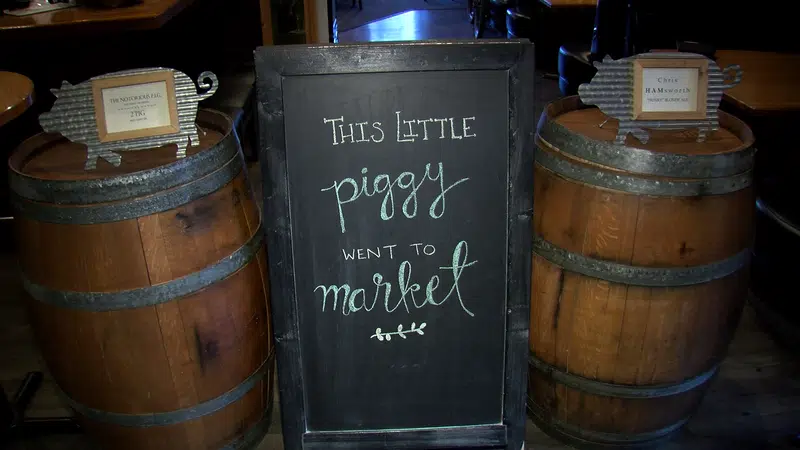 THE NOTORIOUS P.I.G.
2 PIG
THIS LITTLE
piggy
WENT TO
market
Chris
HAMsworth